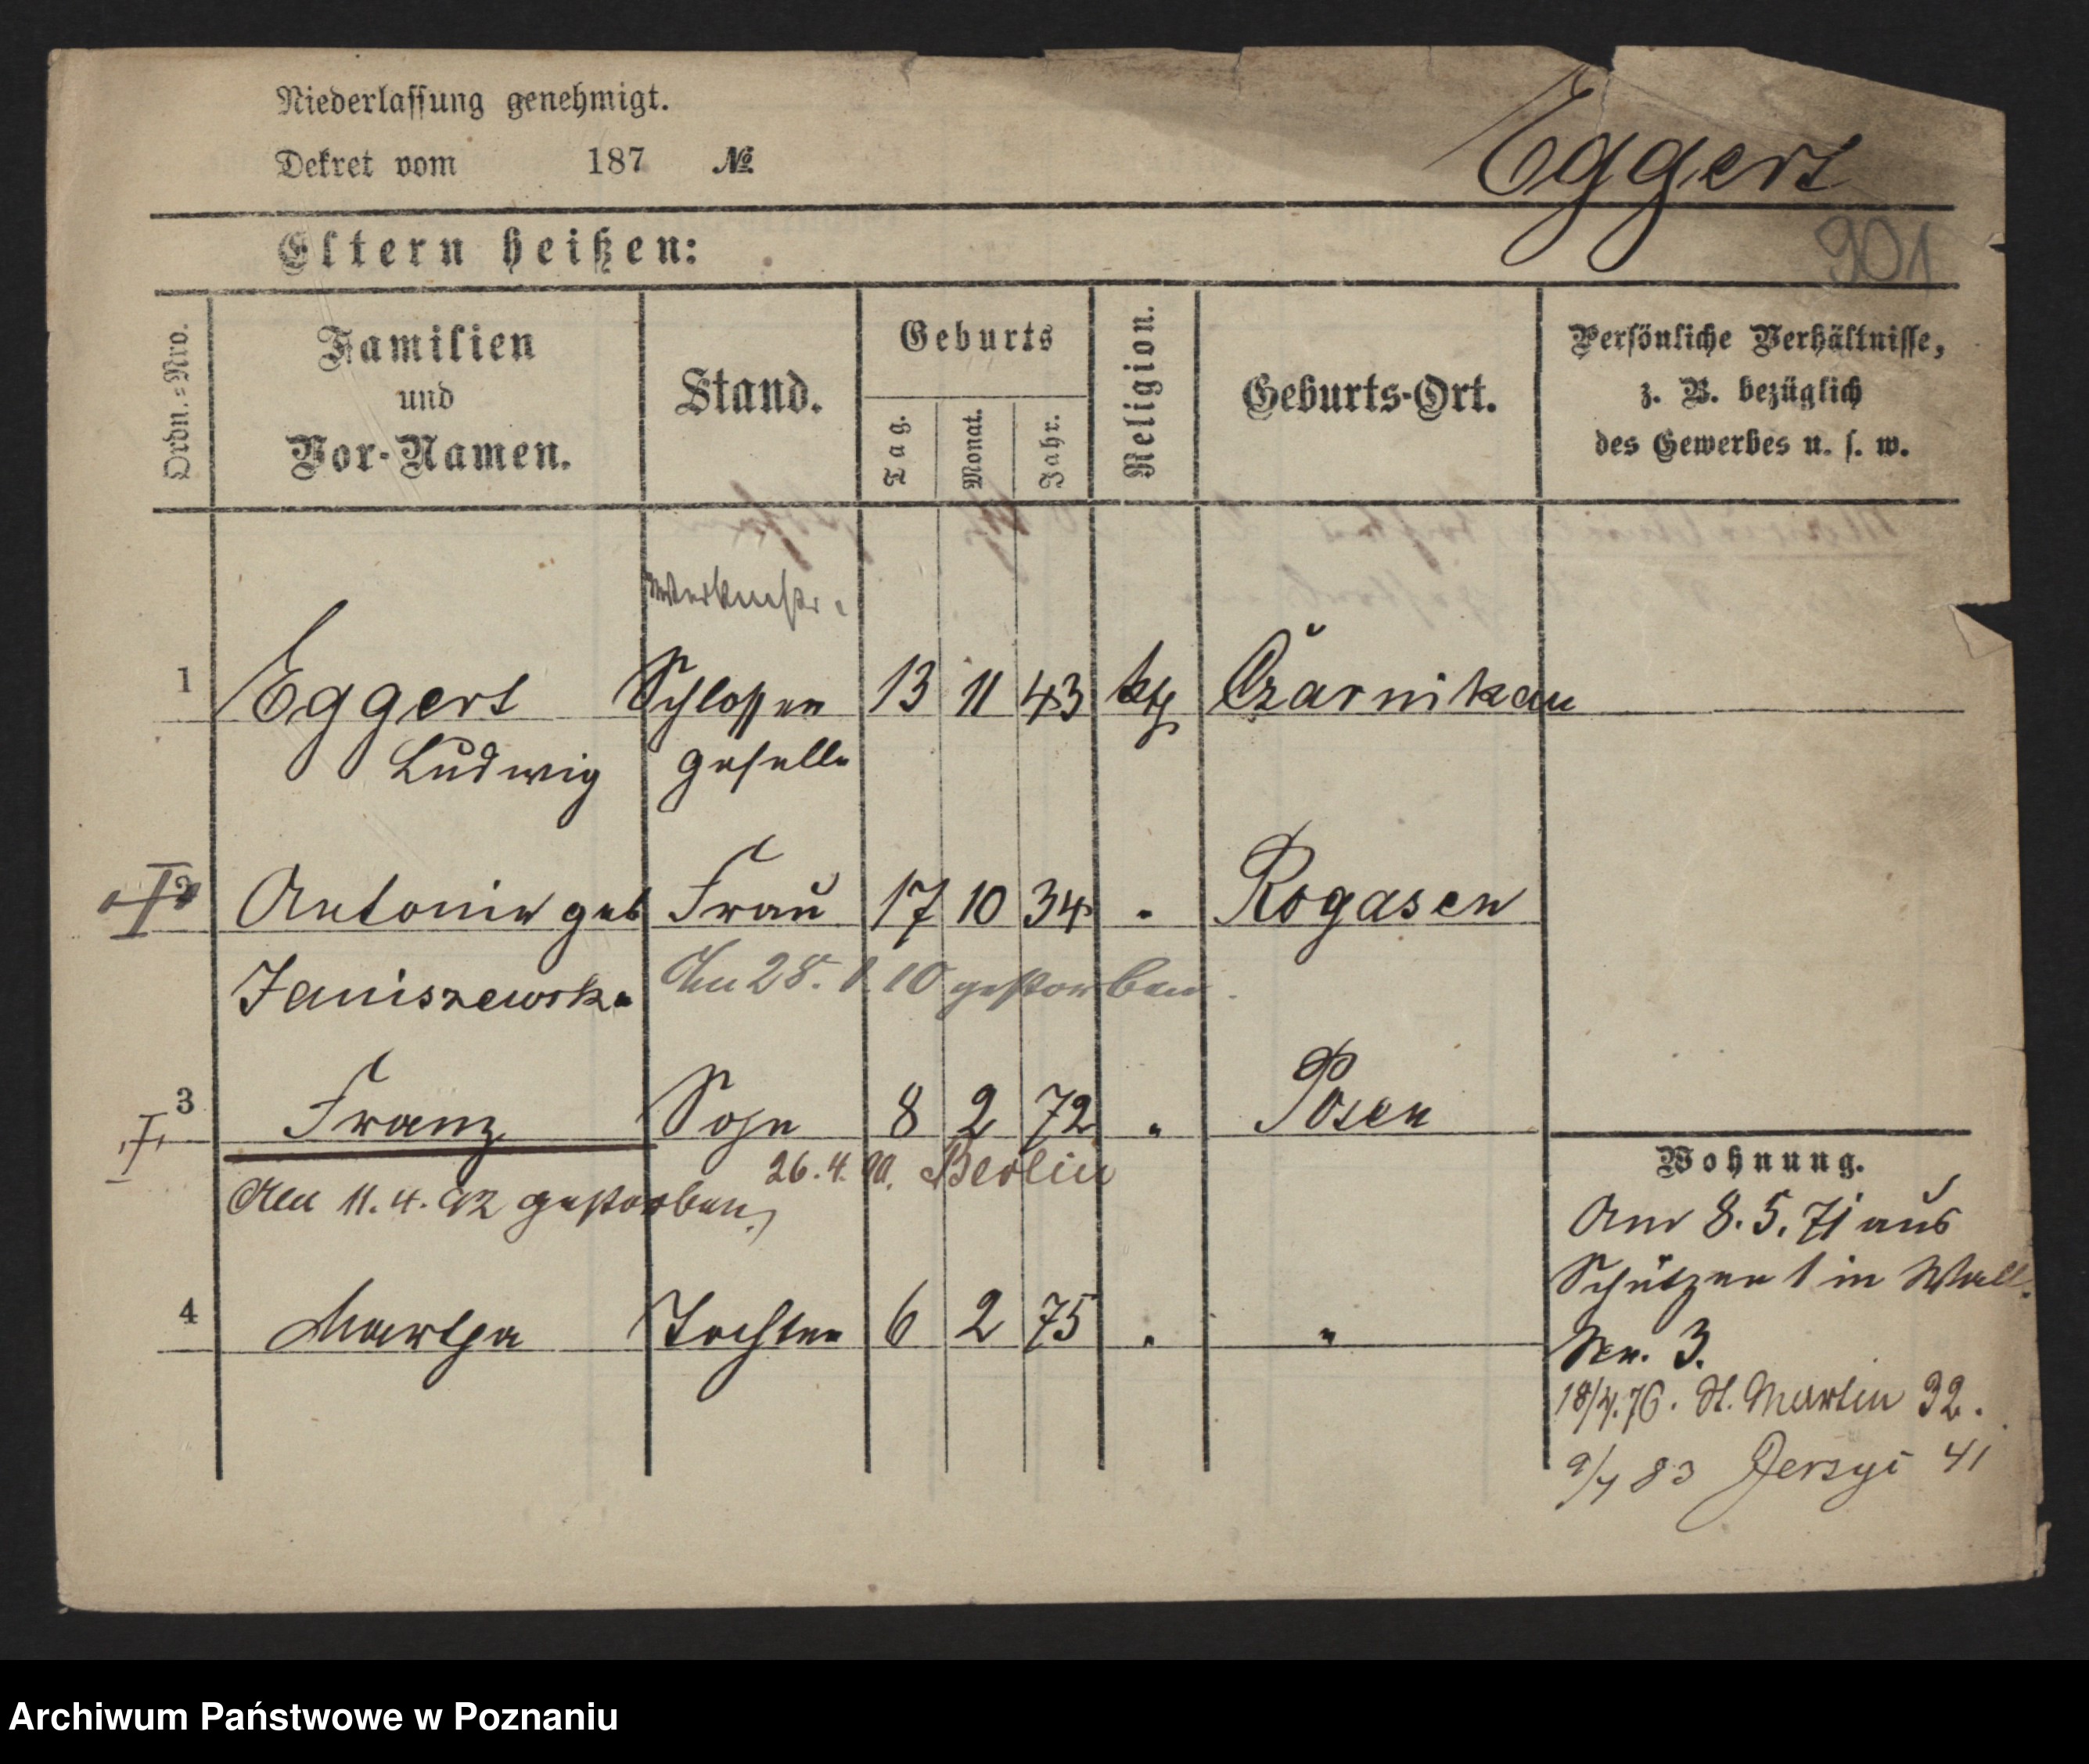 Niederlassung genehmigt.
Dekret vom 187 №
Eggers
Eltern heißen:
901
Ordn.-Nro.
Familien
und
Vor-Namen.
Stand.
Geburts
Tag.
Monat.
Jahr.
Religion.
Geburts-Ort.
Persönliche Verhältnisse,
z. B. bezüglich
des Gewerbes u. s. w.
1 Eggert Schlosser 13 11 43 kth Czarnikau
Ludwig geselle
2 Antonie geb Frau 17 10 34 " Rogasen
Janiszewska Am 28. 1. 10 gestorben.
3 Franz Sohn 8 2 72 " Posen
26. 4. 90. Berlin
Am 11. 4. 92 gestorben.
4 Martha Tochter 6 2 75 " "
Wohnung.
Am 8. 5. 71 aus
Schützen 1 in Wall-
Str. 3.
18/4. 76. St. Martin 32.
9/4 83 Jersyc 41
Archiwum Państwowe w Poznaniu